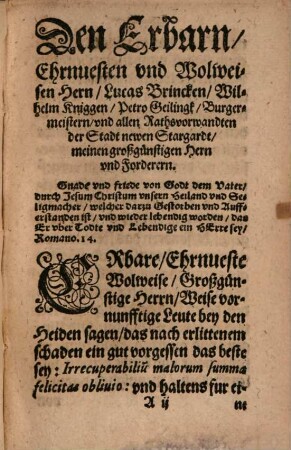 Den Erbarn/
Ehrnuesten vnd Wolwei-
sen Hern/ Lucas Brincken/ Wil-
helm Kniggen/ Petro Geilingk/ Burger-
meistern/ vnd allen Rathsvorwandten
der Stadt newen Stargardt/
meinen großgünstigen Hern
vnd Forderern.
Gnade vnd friede von Godt dem Vater/
durch Jesum Christum vnsern Heiland vnd Se-
ligmacher/ welcher darzu Gestorben vnd Auff-
erstanden ist/ vnd wieder lebendig worden/ das
Er vber Todte vnd Lebendige ein HErre sey/
Romano. 14.
ERbare/ Ehrnueste
Wolweise/ Großgün-
stige Herrn/ Weise vor-
nunfftige Leute bey den
Heiden sagen/ das nach erlittenem
schaden ein gut vorgessen das beste
sey: Irrecuperabiliũ malorum summa
felicitas obliuio: vnd haltens fur ei-
A ij
ne